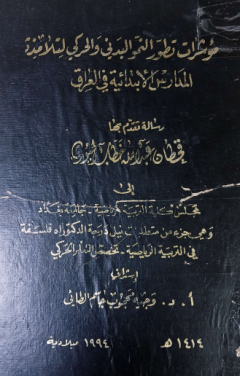 مؤشرات تطور النمو البدني والحركي لتلامذة
المدارس الابتدائية في العراق
رسالة تقدم بها
قحطان
إلى
مجلس كلية التربية الرياضية - جامعة بغداد
وهي جزء من متطلبات نيل درجة الدكتوراه فلسفة
في التربية الرياضية - تخصص التعلم الحركي
إشراف
أ . د . وجيه محجوب جاسم الطائي
١٤١٤ هـ ١٩٩٤ ميلادية